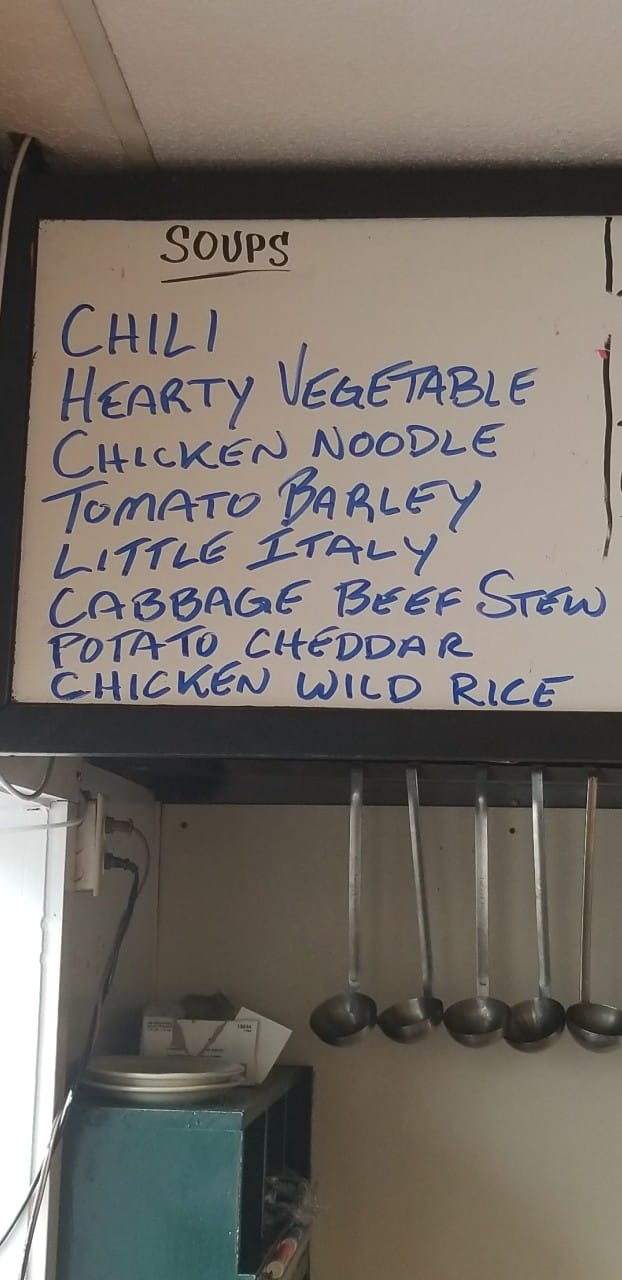 SOUPS
CHILI
HEARTY VEGETABLE
CHICKEN NOODLE
TOMATO BARLEY
LITTLE ITALY
CABBAGE BEEF STEW
POTATO CHEDDAR
CHICKEN WILD RICE